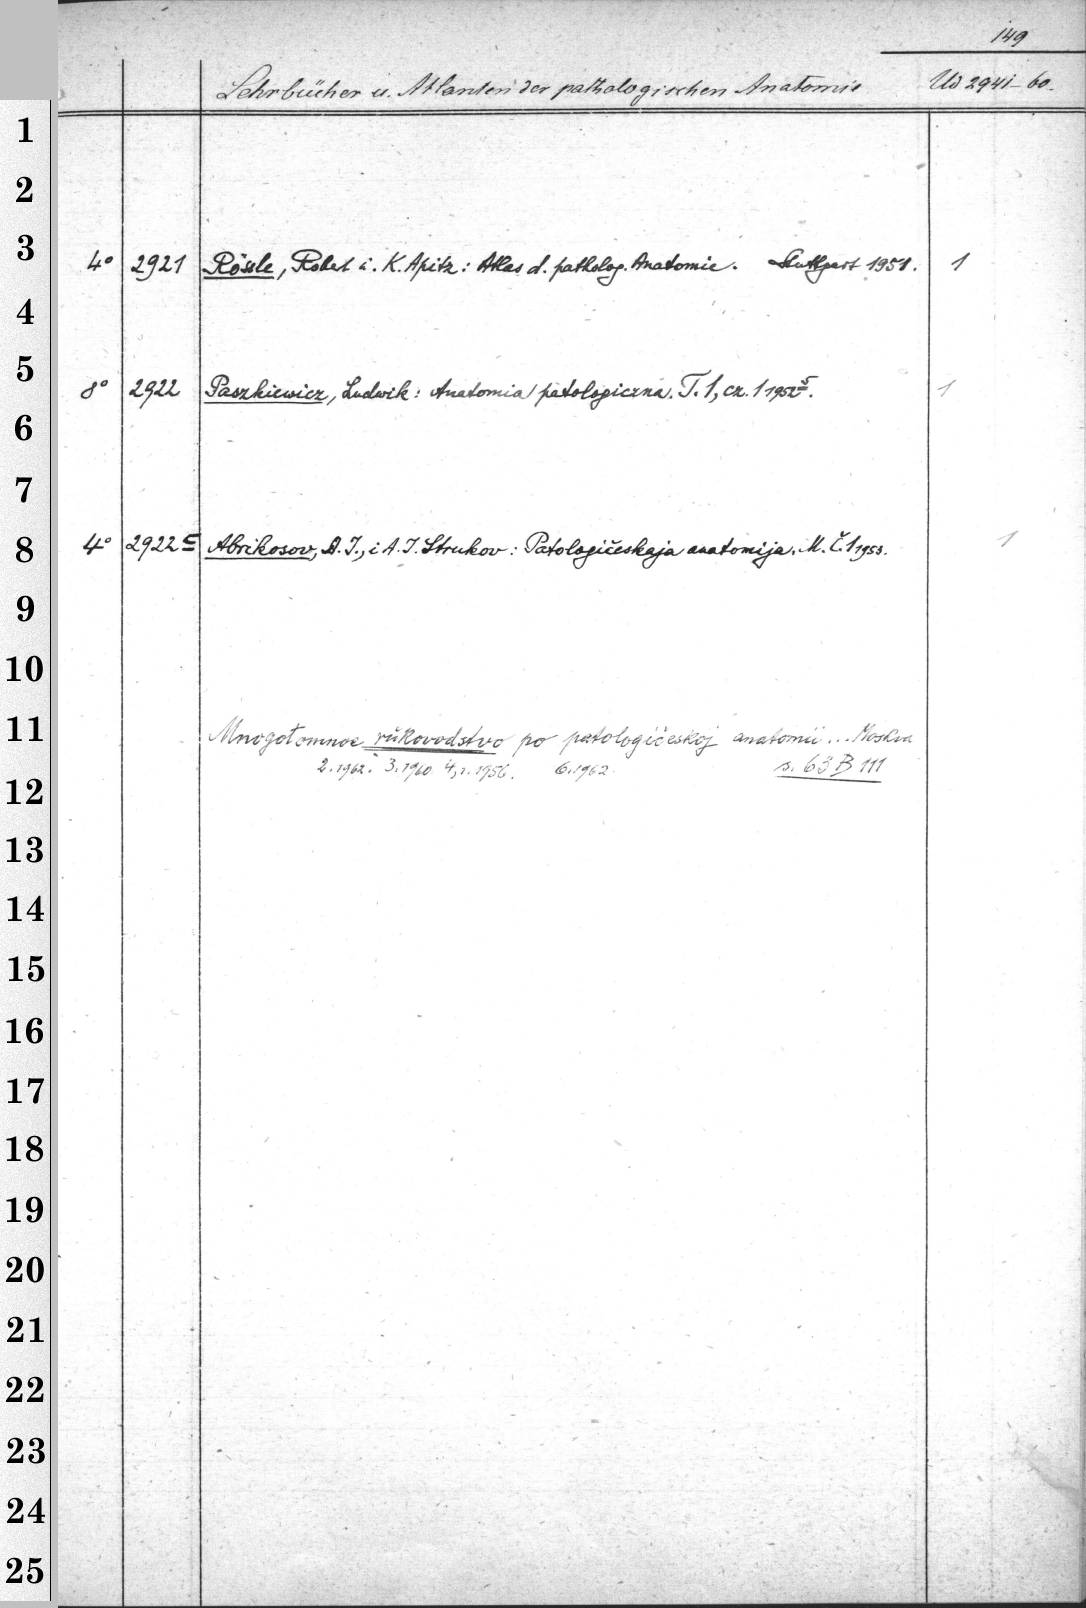 149
Lehrbücher u. Atlanten der pathologischen Anatomie Ud 2941-60.
1
2
3 4° 2921 Rössle, Robert i. K. Apitz: Atlas d. patholog. Anatomie. Stuttgart 1951. 1
4
5 8° 2922 Paszkiewicz, Ludwik: Anatomia patologiczna. T. 1, cz. 1 1952. 1
6
7
8 4° 2922 c Abrikosov, A. I., i A. I. Strukov: Patologičeskaja anatomija. M. Č. 1 1953. 1
9
10
11 Mnogotomnoe rukovodstvo po patologičeskoj anatomii... Moskva
12 2. 1962. 3. 1960 4,1. 1956. 6. 1962. s. 63 B 111
13
14
15
16
17
18
19
20
21
22
23
24
25